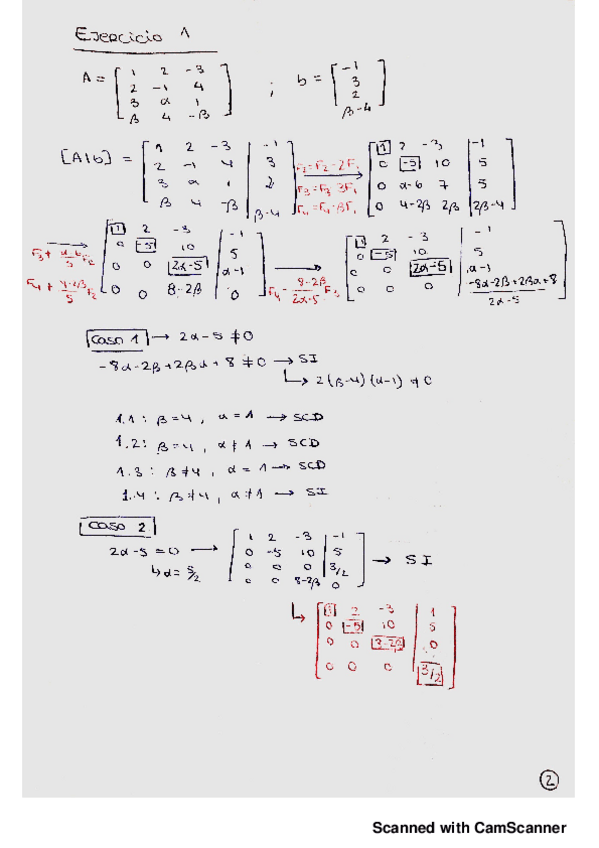 Ejercicio 1
A = [ 1 2 -3 ; 2 -1 4 ; 3 α 1 ; β 4 -β ] ; b = [ -1 ; 3 ; 2 ; β-4 ]
[A|b] = [ 1 2 -3 | -1 ; 2 -1 4 | 3 ; 3 α 1 | 2 ; β 4 -β | β-4 ] F2=F2-2F1 F3=F3-3F1 F4=F4-βF1 → [ 1 2 -3 | -1 ; 0 -5 10 | 5 ; 0 α-6 7 | 5 ; 0 4-2β 2β | 2β-4 ]
F3 + α-6/5 F2 F4 + 4-2β/5 F2 → [ 1 2 -3 | -1 ; 0 -5 10 | 5 ; 0 0 2α-5 | α-1 ; 0 0 8-2β | 0 ] F4 - 8-2β/2α-5 F3 → [ 1 2 -3 | -1 ; 0 -5 10 | 5 ; 0 0 2α-5 | α-1 ; 0 0 0 | -8α-2β+2βα+8/2α-5 ]
Caso 1 → 2α-5 ≠ 0
-8α-2β+2βα+8 ≠ 0 → SI
↳ 2(β-4)(α-1) ≠ 0
1.1: β=4, α=1 → SCD
1.2: β=4, α≠1 → SCD
1.3: β≠4, α=1 → SCD
1.4: β≠4, α≠1 → SI
Caso 2
2α-5=0 → [ 1 2 -3 | -1 ; 0 -5 10 | 5 ; 0 0 0 | 3/2 ; 0 0 8-2β | 0 ] → SI
↳ α=5/2
↳ [ 1 2 -3 | 1 ; 0 -5 10 | 5 ; 0 0 8-2β | 0 ; 0 0 0 | 3/2 ]
2
Scanned with CamScanner